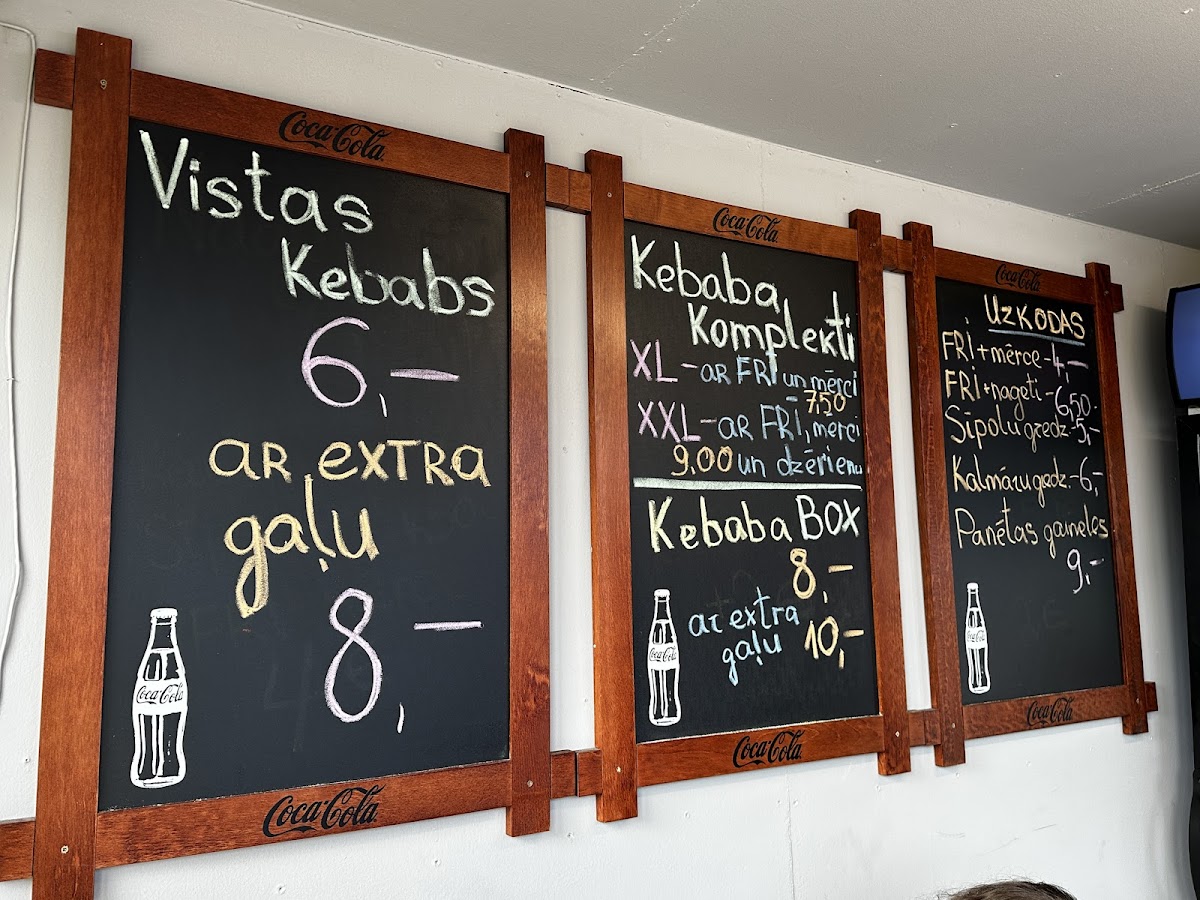 Coca-Cola
Vistas
Kebabs
6,—
AR EXTRA
gaļu
8,—
Coca-Cola
Coca-Cola
Coca-Cola
Kebaba
Komplekti
XL -AR FRI un mērci
- 7,50
XXL-AR FRI, mērci
9,00 un dzērienu
Kebaba BOX
8,—
ar extra
gaļu 10,—
Coca-Cola
Coca-Cola
Coca-Cola
UZKODAS
FRI + mērce - 4,—
FRI + nageti - 6,50.
Sīpolu gredz - 5,-
Kalmāru gredz. - 6,-
Panētas garneles
9,-
Coca-Cola
Coca-Cola